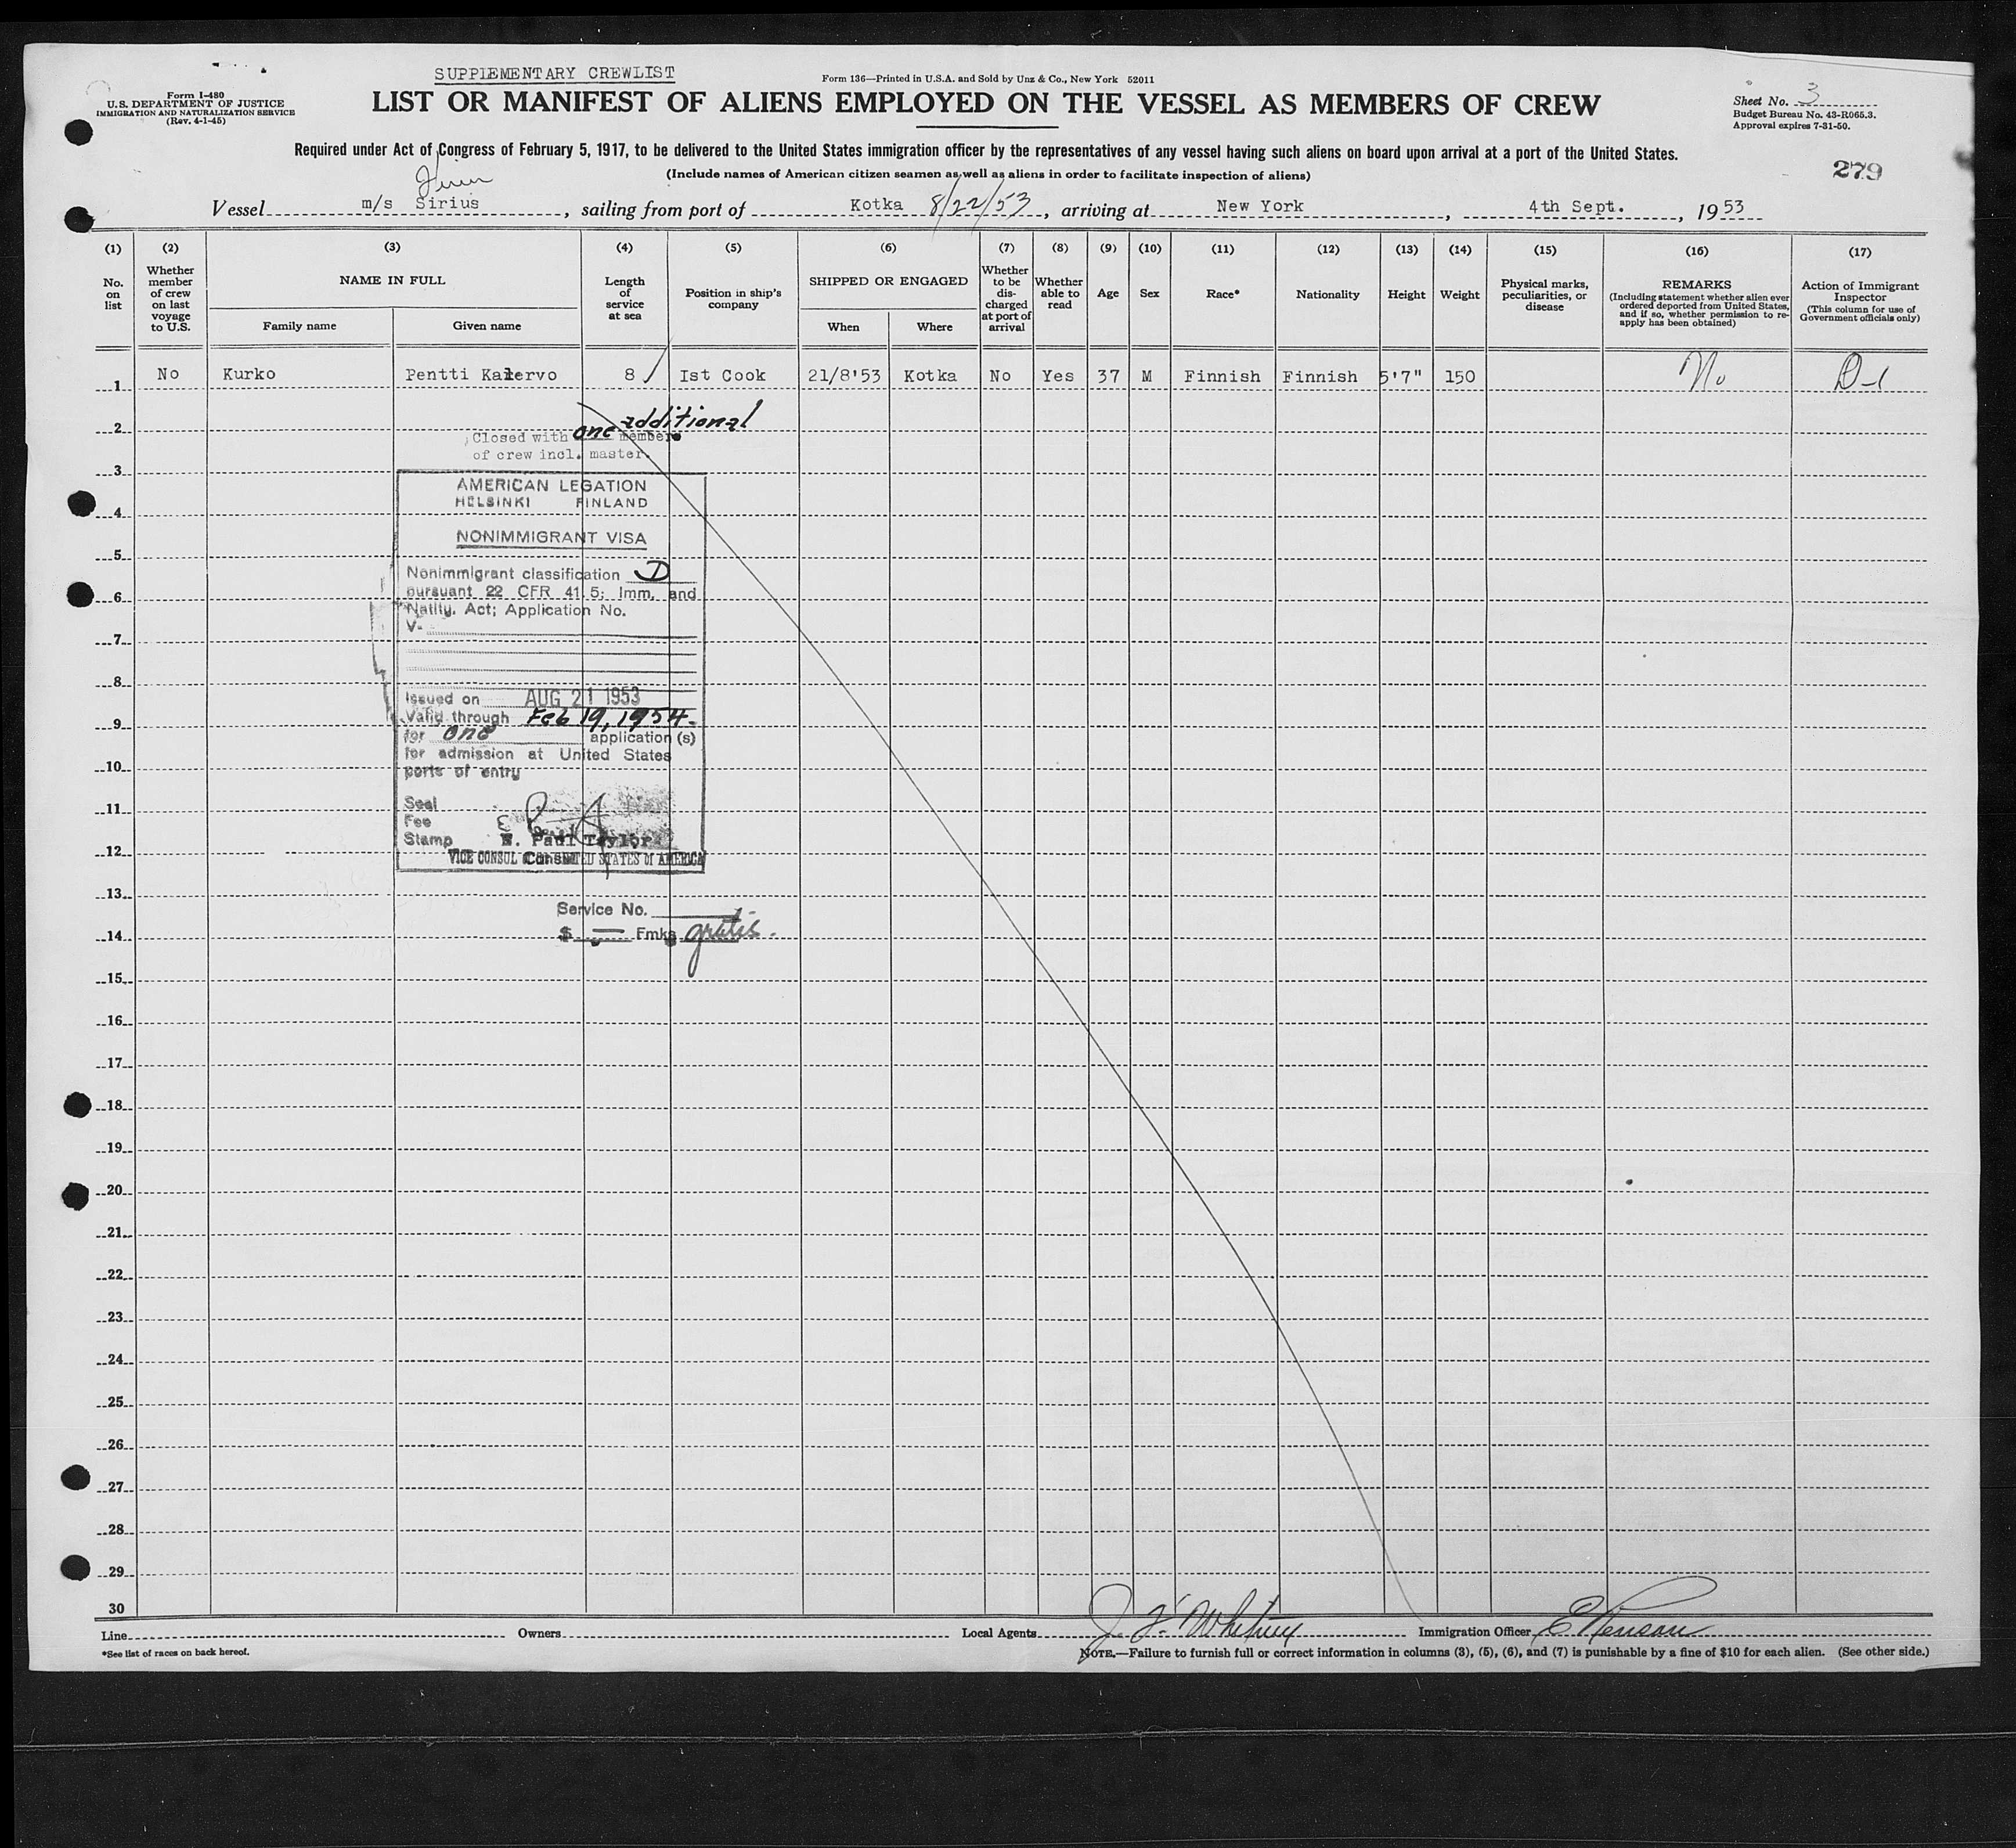 SUPPLEMENTARY CREWLIST
Form 136—Printed in U.S.A. and Sold by Unz & Co., New York 52011
Form I-480
U.S. DEPARTMENT OF JUSTICE
IMMIGRATION AND NATURALIZATION SERVICE
(Rev. 4-1-45)
LIST OR MANIFEST OF ALIENS EMPLOYED ON THE VESSEL AS MEMBERS OF CREW
Sheet No. 3
Budget Bureau No. 43-R065.3.
Approval expires 7-31-50.
Required under Act of Congress of February 5, 1917, to be delivered to the United States immigration officer by the representatives of any vessel having such aliens on board upon arrival at a port of the United States.
(Include names of American citizen seamen as well as aliens in order to facilitate inspection of aliens)
279
Vessel m/s Sirius, sailing from port of Kotka 8/22/53, arriving at New York, 4th Sept., 1953
(1) (2) (3) (4) (5) (6) (7) (8) (9) (10) (11) (12) (13) (14) (15) (16) (17)
No. on list
Whether member of crew on last voyage to U.S.
NAME IN FULL
Family name
Given name
Length of service at sea
Position in ship's company
SHIPPED OR ENGAGED
When
Where
Whether to be discharged at port of arrival
Whether able to read
Age
Sex
Race*
Nationality
Height
Weight
Physical marks, peculiarities, or disease
REMARKS
(Including statement whether alien ever ordered deported from United States, and if so, whether permission to re-apply has been obtained)
Action of Immigrant Inspector
(This column for use of Government officials only)
1 No Kurko Pentti Kalervo 8 Ist Cook 21/8'53 Kotka No Yes 37 M Finnish Finnish 5'7" 150 No D-1
2
additional
Closed with one members
of crew incl. master.
3
AMERICAN LEGATION
HELSINKI FINLAND
4
NONIMMIGRANT VISA
5
Nonimmigrant classification D
pursuant 22 CFR 41.5; Imm. and
6
Natlty. Act; Application No.
V-
7
8
Issued on AUG 21 1953
Valid through Feb 19, 1954.
9
for one application (s)
for admission at United States
10
ports of entry
Seal
11
Fee
Stamp E. Paul Taylor
12
VICE CONSUL OF THE UNITED STATES OF AMERICA
Consul
13
Service No.
14
$ — Fmks gratis.
15
16
17
18
19
20
21
22
23
24
25
26
27
28
29
30
Line Owners Local Agents J. F. Whitney Immigration Officer
*See list of races on back hereof.
NOTE.—Failure to furnish full or correct information in columns (3), (5), (6), and (7) is punishable by a fine of $10 for each alien. (See other side.)